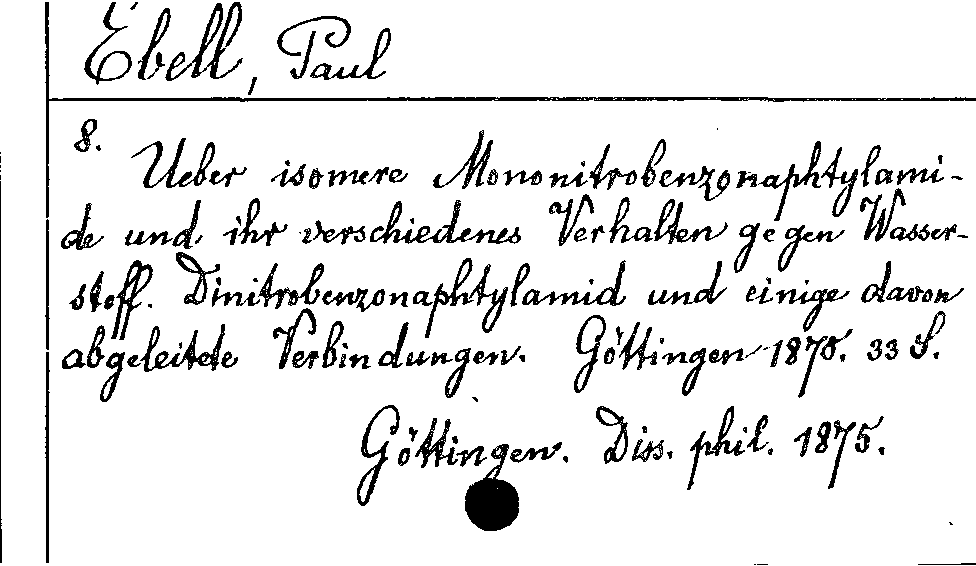 Ebell, Paul
8.
Ueber isomere Mononitrobenzonaphtylami-
de und ihr verschiedenes Verhalten gegen Wasser-
stoff. Dinitrobenzonaphtylamid und einige davon
abgeleitete Verbindungen. Göttingen 1875. 33 S.
Göttingen. Diss. phil. 1875.